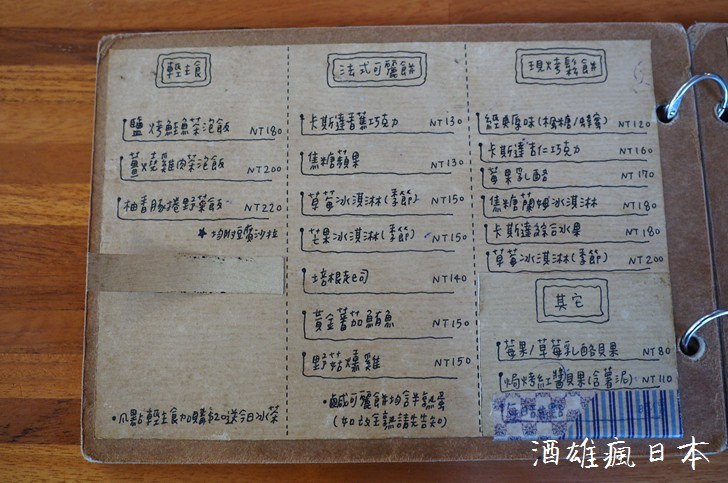 輕主食
鹽烤鮭魚茶泡飯 NT180
薑燒雞肉茶泡飯 NT200
柚香豚捲野菜飯 NT220
★均附豆腐沙拉
•凡點輕主食加購$20送今日冰茶
法式可麗餅
卡斯達香蕉巧克力 NT130
焦糖蘋果 NT130
草莓冰淇淋(季節) NT150
芒果冰淇淋(季節) NT150
培根起司 NT140
黃金蕃茄鮪魚 NT150
野菇燻雞 NT150
•鹹可麗餅均含半熟蛋
(如改全熟請先告知)
現烤鬆餅
經典原味(楓糖/蜂蜜) NT120
卡斯達杏仁巧克力 NT160
莓果乳酪 NT170
焦糖蘭姆冰淇淋 NT180
卡斯達綜合水果 NT180
草莓冰淇淋(季節) NT200
其它
莓果/草莓乳酪貝果 NT80
焗烤紅醬貝果(含薯泥) NT110
酒雄瘋日本